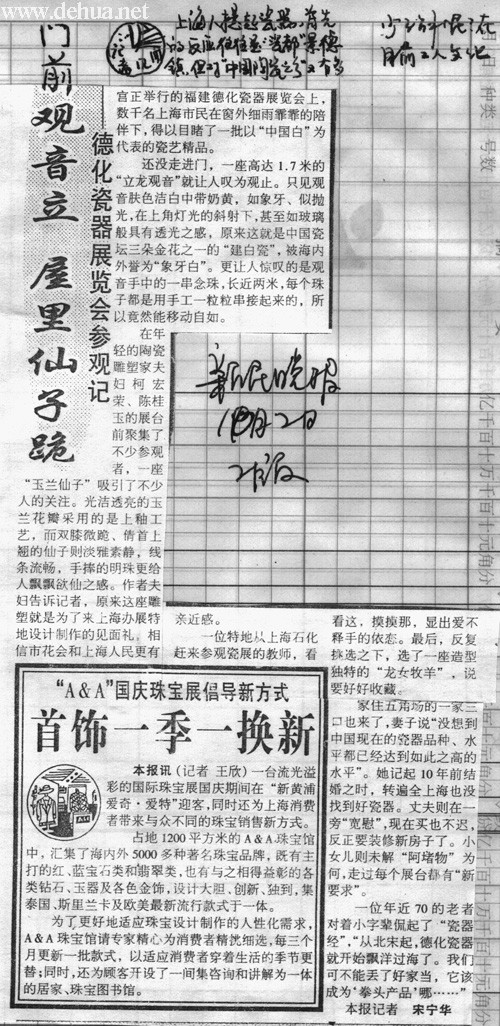 www.dehua.net
上海人提起瓷器,首先
的反应往往是"瓷都"景德
镇,但对"中国陶瓷之乡"又有多
少了解呢?在
门前观音立 屋里仙子跪
德化瓷器展览会参观记
宫正举行的福建德化瓷器展览会上,
数千名上海市民在窗外细雨霏霏的陪
伴下,得以目睹了一批以“中国白”为
代表的瓷艺精品。
还没走进门,一座高达1.7米的
“立龙观音”就让人叹为观止。只见观
音肤色洁白中带奶黄,如象牙、似抛
光,在上角灯光的斜射下,甚至如玻璃
般具有透光之感,原来这就是中国瓷
坛三朵金花之一的“建白瓷”,被海内
外誉为“象牙白”。更让人惊叹的是观
音手中的一串念珠,长近两米,每个珠
子都是用手工一粒粒串接起来的,所
以竟然能移动自如。
在年
轻的陶瓷
雕塑家夫
妇柯宏
荣、陈桂
玉的展台
前聚集了
不少参观
者,一座
“玉兰仙子”吸引了不少
人的关注。光洁透亮的玉
兰花瓣采用的是上釉工
艺,而双膝微跪、倩首上
翘的仙子则淡雅素静,线
条流畅,手捧的明珠更给
人飘飘欲仙之感。作者夫
妇告诉记者,原来这座雕
塑就是为了来上海办展特
地设计制作的见面礼。相
信市花会和上海人民更有
新民晚报
10月2日
2版
亲近感。
一位特地从上海石化
赶来参观瓷展的教师,看
看这,摸摸那,显出爱不
释手的依恋。最后,反复
挑选之下,选了一座造型
独特的“龙女牧羊”,说
要好好收藏。
家住五角场的一家三
口也来了,妻子说“没想到
中国现在的瓷器品种、水
平都已经达到如此之高的
水平”。她记起10年前结
婚之时,转遍全上海也没
找到好瓷器。丈夫则在一
旁“宽慰”,现在买也不迟,
反正要装修新房子了。小
女儿则未解“阿堵物”为
何,走过每个展台都有“新
要求”。
一位年近70的老者
对着小字辈侃起了“瓷器
经”,“从北宋起,德化瓷器
就开始飘洋过海了。我们
可不能丢了好家当,它该
成为‘拳头产品’哪……”
本报记者 宋宁华
“A&A”国庆珠宝展倡导新方式
首饰一季一换新
本报讯(记者 王欣)一台流光溢
彩的国际珠宝展国庆期间在“新黄浦
爱奇·爱特”迎客,同时还为上海消费
者带来与众不同的珠宝销售新方式。
占地1200平方米的A&A珠宝馆
中,汇集了海内外5000多种著名珠宝品牌,既有主
打的红、蓝宝石类和翡翠类,也有与之相得益彰的各
类钻石、玉器及各色金饰,设计大胆、创新、独到,集
泰国、斯里兰卡及欧美最新流行款式于一体。
为了更好地适应珠宝设计制作的人性化需求,
A&A珠宝馆请专家精心为消费者精洗细选,每三个
月更新一批款式,以适应消费者穿着生活的季节更
替;同时,还为顾客开设了一间集咨询和讲解为一体
的居家、珠宝图书馆。